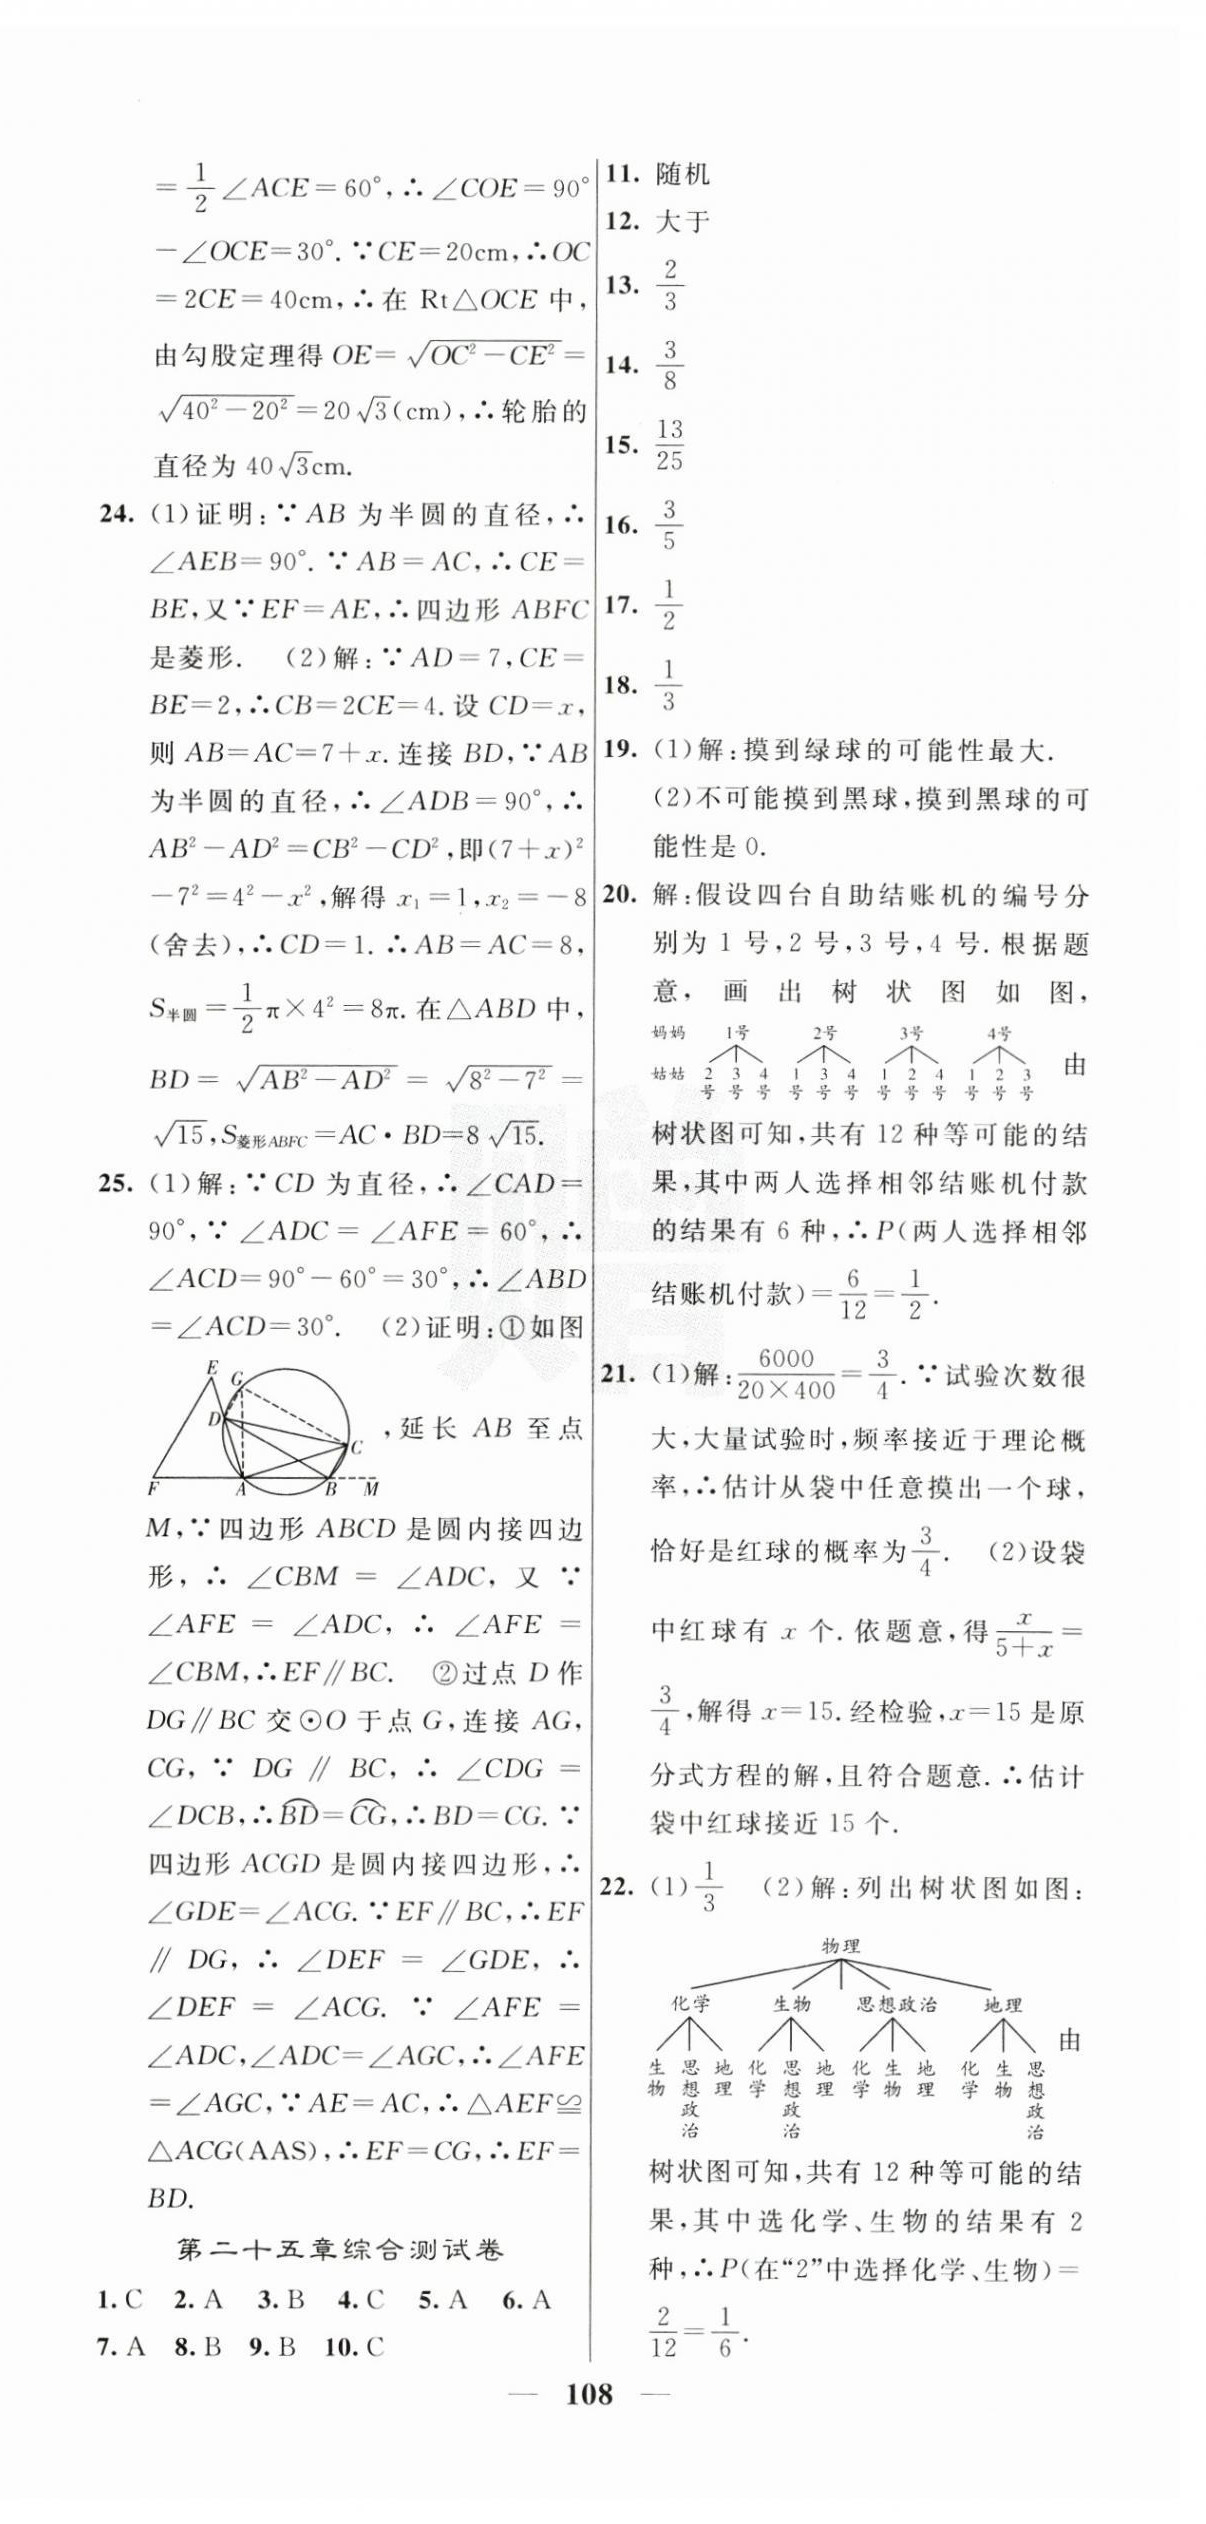 =1/2∠ACE=60°,∴∠COE=90°
-∠OCE=30°.∵CE=20cm,∴OC
=2CE=40cm,∴在 Rt△OCE 中,
由勾股定理得 OE=√(OC²-CE²)=
√(40²-20²)=20√3(cm),∴轮胎的
直径为 40√3cm.
24. (1)证明:∵AB 为半圆的直径,∴
∠AEB=90°.∵AB=AC,∴CE=
BE,又∵EF=AE,∴四边形 ABFC
是菱形. (2)解:∵AD=7,CE=
BE=2,∴CB=2CE=4.设 CD=x,
则 AB=AC=7+x.连接 BD,∵AB
为半圆的直径,∴∠ADB=90°,∴
AB²-AD²=CB²-CD²,即(7+x)²
-7²=4²-x²,解得 x₁=1,x₂=-8
(舍去),∴CD=1.∴AB=AC=8,
S半圆=1/2π×4²=8π.在△ABD 中,
BD=√(AB²-AD²)=√(8²-7²)=
√15,S菱形ABFC=AC·BD=8√15.
25. (1)解:∵CD 为直径,∴∠CAD=
90°,∵∠ADC=∠AFE=60°,∴
∠ACD=90°-60°=30°,∴∠ABD
=∠ACD=30°. (2)证明:①如图
E G D C F A B M
,延长 AB 至点
M,∵四边形 ABCD 是圆内接四边
形,∴∠CBM=∠ADC,又∵
∠AFE=∠ADC,∴∠AFE=
∠CBM,∴EF∥BC. ②过点 D 作
DG∥BC 交⊙O 于点 G,连接 AG,
CG,∵DG∥BC,∴∠CDG=
∠DCB,∴⌒BD=⌒CG,∴BD=CG.∵
四边形 ACGD 是圆内接四边形,∴
∠GDE=∠ACG.∵EF∥BC,∴EF
∥DG,∴∠DEF=∠GDE,∴
∠DEF=∠ACG.∵∠AFE=
∠ADC,∠ADC=∠AGC,∴∠AFE
=∠AGC,∵AE=AC,∴△AEF≌
△ACG(AAS),∴EF=CG,∴EF=
BD.
第二十五章综合测试卷
1. C 2. A 3. B 4. C 5. A 6. A
7. A 8. B 9. B 10. C
11. 随机
12. 大于
13. 2/3
14. 3/8
15. 13/25
16. 3/5
17. 1/2
18. 1/3
19. (1)解:摸到绿球的可能性最大.
(2)不可能摸到黑球,摸到黑球的可
能性是 0.
20. 解:假设四台自助结账机的编号分
别为 1 号,2 号,3 号,4 号.根据题
意,画出树状图如图,
妈妈 1号 2号 3号 4号
姑姑 2号 3号 4号 1号 3号 4号 1号 2号 4号 1号 2号 3号 由
树状图可知,共有 12 种等可能的结
果,其中两人选择相邻结账机付款
的结果有 6 种,∴P(两人选择相邻
结账机付款)=6/12=1/2.
21. (1)解:6000/(20×400)=3/4.∵试验次数很
大,大量试验时,频率接近于理论概
率,∴估计从袋中任意摸出一个球,
恰好是红球的概率为3/4. (2)设袋
中红球有 x 个.依题意,得x/(5+x)=
3/4,解得 x=15.经检验,x=15 是原
分式方程的解,且符合题意.∴估计
袋中红球接近 15 个.
22. (1)1/3 (2)解:列出树状图如图:
物理
化学 生物 思想政治 地理
生物 思想政治 地理 化学 思想政治 地理 化学 生物 地理 化学 生物 思想政治 由
树状图可知,共有 12 种等可能的结
果,其中选化学、生物的结果有 2
种,∴P(在“2”中选择化学、生物)=
2/12=1/6.
— 108 —